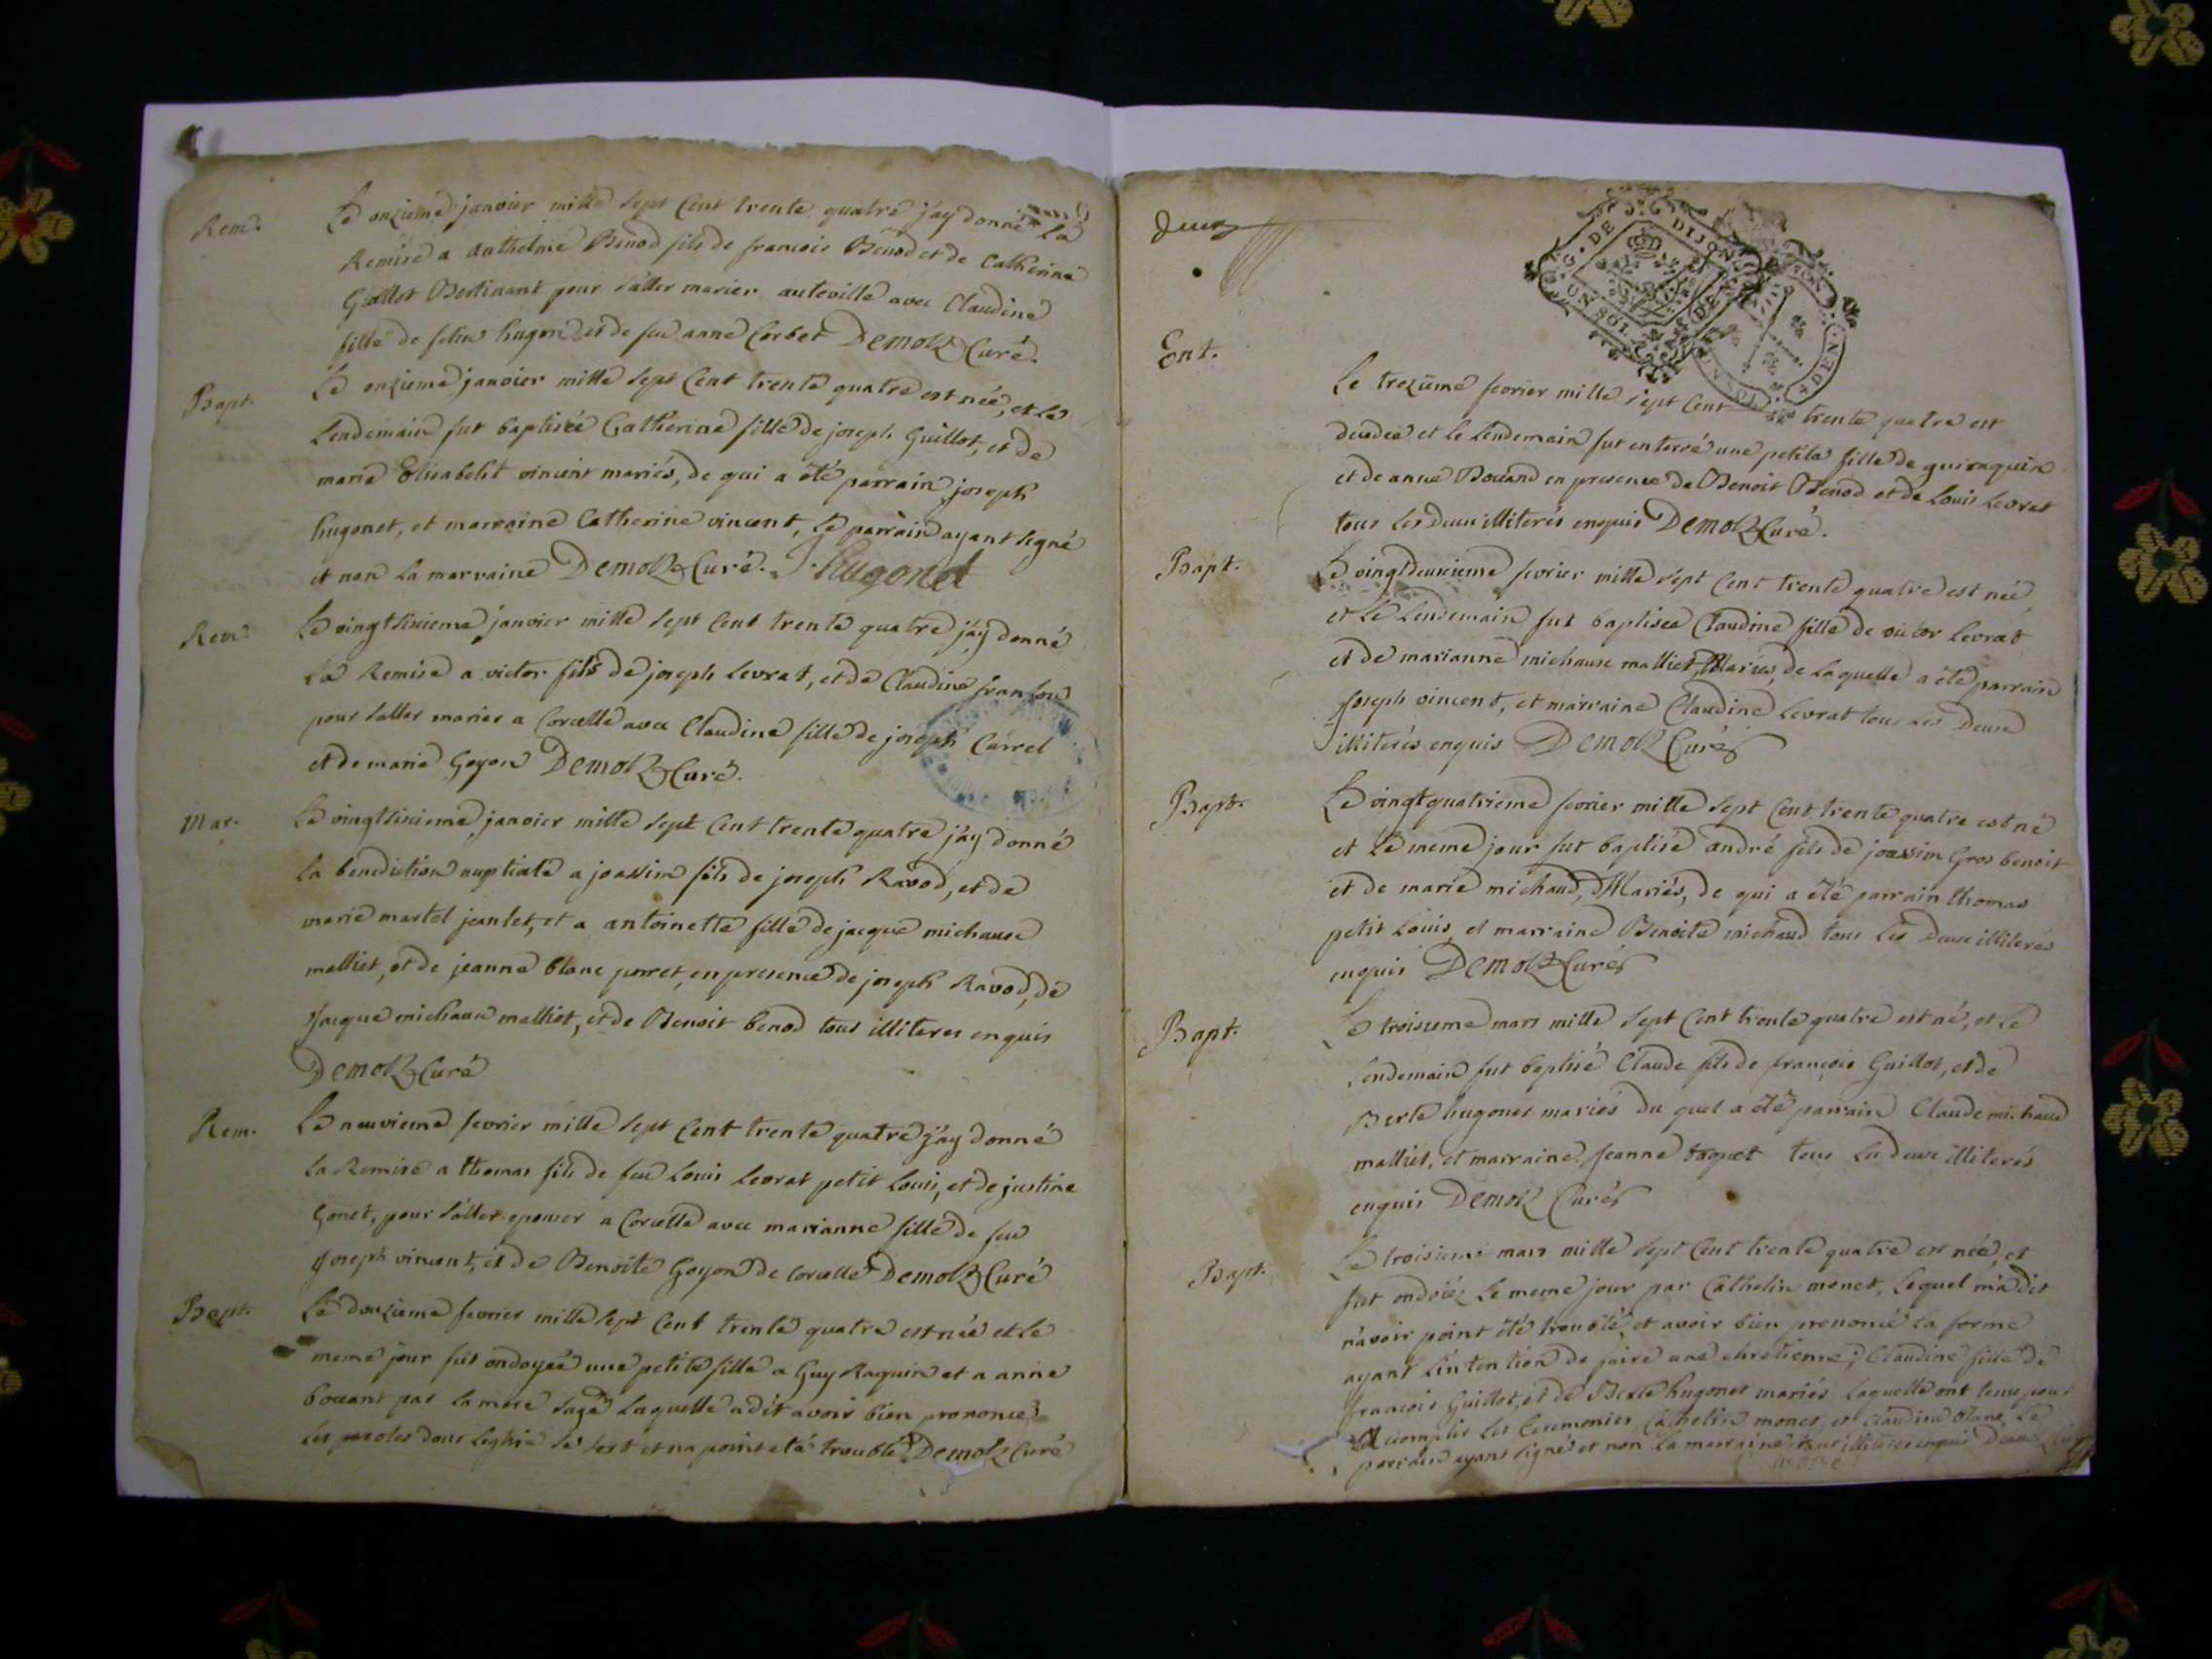 Rem.
Le onzieme janvier mille sept cent trente quatre j'ay donné la
Remise a anthelme Benod fils de francois Benod et de Catherine
Guillot pour s'aller marier auteville avec Claudine
fille de hugon et de feu anne Corbet Demolz Curé.
Bapt.
Le onzieme janvier mille sept Cent trente quatre est née, et le
Lendemain fut baptisée Catherine fille de joseph Guillot, et de
marie Elisabeht vincent mariés, de qui a été parrain joseph
hugonet, et marraine Catherine vincent, le parrain ayant signé
et non la marraine Demolz Curé. J. hugonet
Rem.
Le vingtsixieme janvier mille sept Cent trente quatre j'ay donné
la Remise a victor fils de joseph levrat, et de Claudine
pour s'aller marier a Corcelle avec Claudine fille de joseph Carrel
et de marie Goyon Demolz Curé.
Mar.
Le vingtsixieme janvier mille sept Cent trente quatre j'ay donné
la benediction nuptiale a joassin fils de joseph Ravod, et de
marie martel jeantet, et a antoinette fille de jacque michaux
malliet, et de jeanne blanc perret, en presence de joseph Ravod, de
Jacque michaux malliet, et de Benoit benod tous illiteres enquis
Demolz Curé
Rem.
Le neuvieme fevrier mille sept Cent trente quatre j'ay donné
la Remise a thomas fils de feu Louis levrat petit Louis, et de justine
Gonet, pour s'aller epouser a Corcelle avec marianne fille de feu
Joseph vincent, et de Benoite Goyon de Corcelle Demolz Curé
Bapt.
Le douzieme fevrier mille sept Cent trente quatre est née et le
meme jour fut ondoyée une petite fille a Guy Raquin et a anne
bouant par la mere sage laquelle a dit avoir bien prononcé
les paroles dont leglise se sert et na point eté troublé Demolz Curé
Deux
DE DIJON
UN SOL
DEN
Ent.
Le trezieme fevrier mille sept Cent trente quatre est
decedée et le lendemain fut enterré une petite fille de gui raquin
et de anne Bouand en presence de Benoit Benod et de Louis Levrat
tous les deux illiterés enquis Demolz Curé.
Bapt.
Le vingtdeuxieme fevrier mille sept Cent trente quatre est née
et le lendemain fut baptisée Claudine fille de victor levrat
et de marianne michaux malliet, Mariés, de laquelle a été parrain
Joseph vincent, et marraine Claudine levrat tous les deux
illiterés enquis Demolz Curé
Bapt.
Le vingtquatrieme fevrier mille sept Cent trente quatre est né
et le meme jour fut baptisé andré fils de joassim Gros benoit
et de marie michaud, Mariés, de qui a été parrain thomas
petit Louis, et marraine Benoite michaud tous les deux illiterés
enquis Demolz Curé
Bapt.
Le troisieme mars mille sept Cent trente quatre est né, et le
lendemain fut baptisé Claude fils de françois Guillot, et de
Berte hugonet mariés du quel a été parrain Claude michaud
malliet, et marraine Jeanne tous les deux illiterés
enquis Demolz Curé
Bapt.
Le troisieme mars mille sept Cent trente quatre est née, et
fut ondoiée le meme jour par Cathelin monet, lequel m'a dit
n'avoir point été troublé, et avoir bien prononcé la forme
ayant l'intention de faire une chretienne; Claudine fille de
francois Guillot, et de Berte hugonet mariés laquelle ont tenu pour
accomplir les Ceremonies Cathelin monet, et Claudine blanc, le
parrain ayant signé et non la marraine enquis